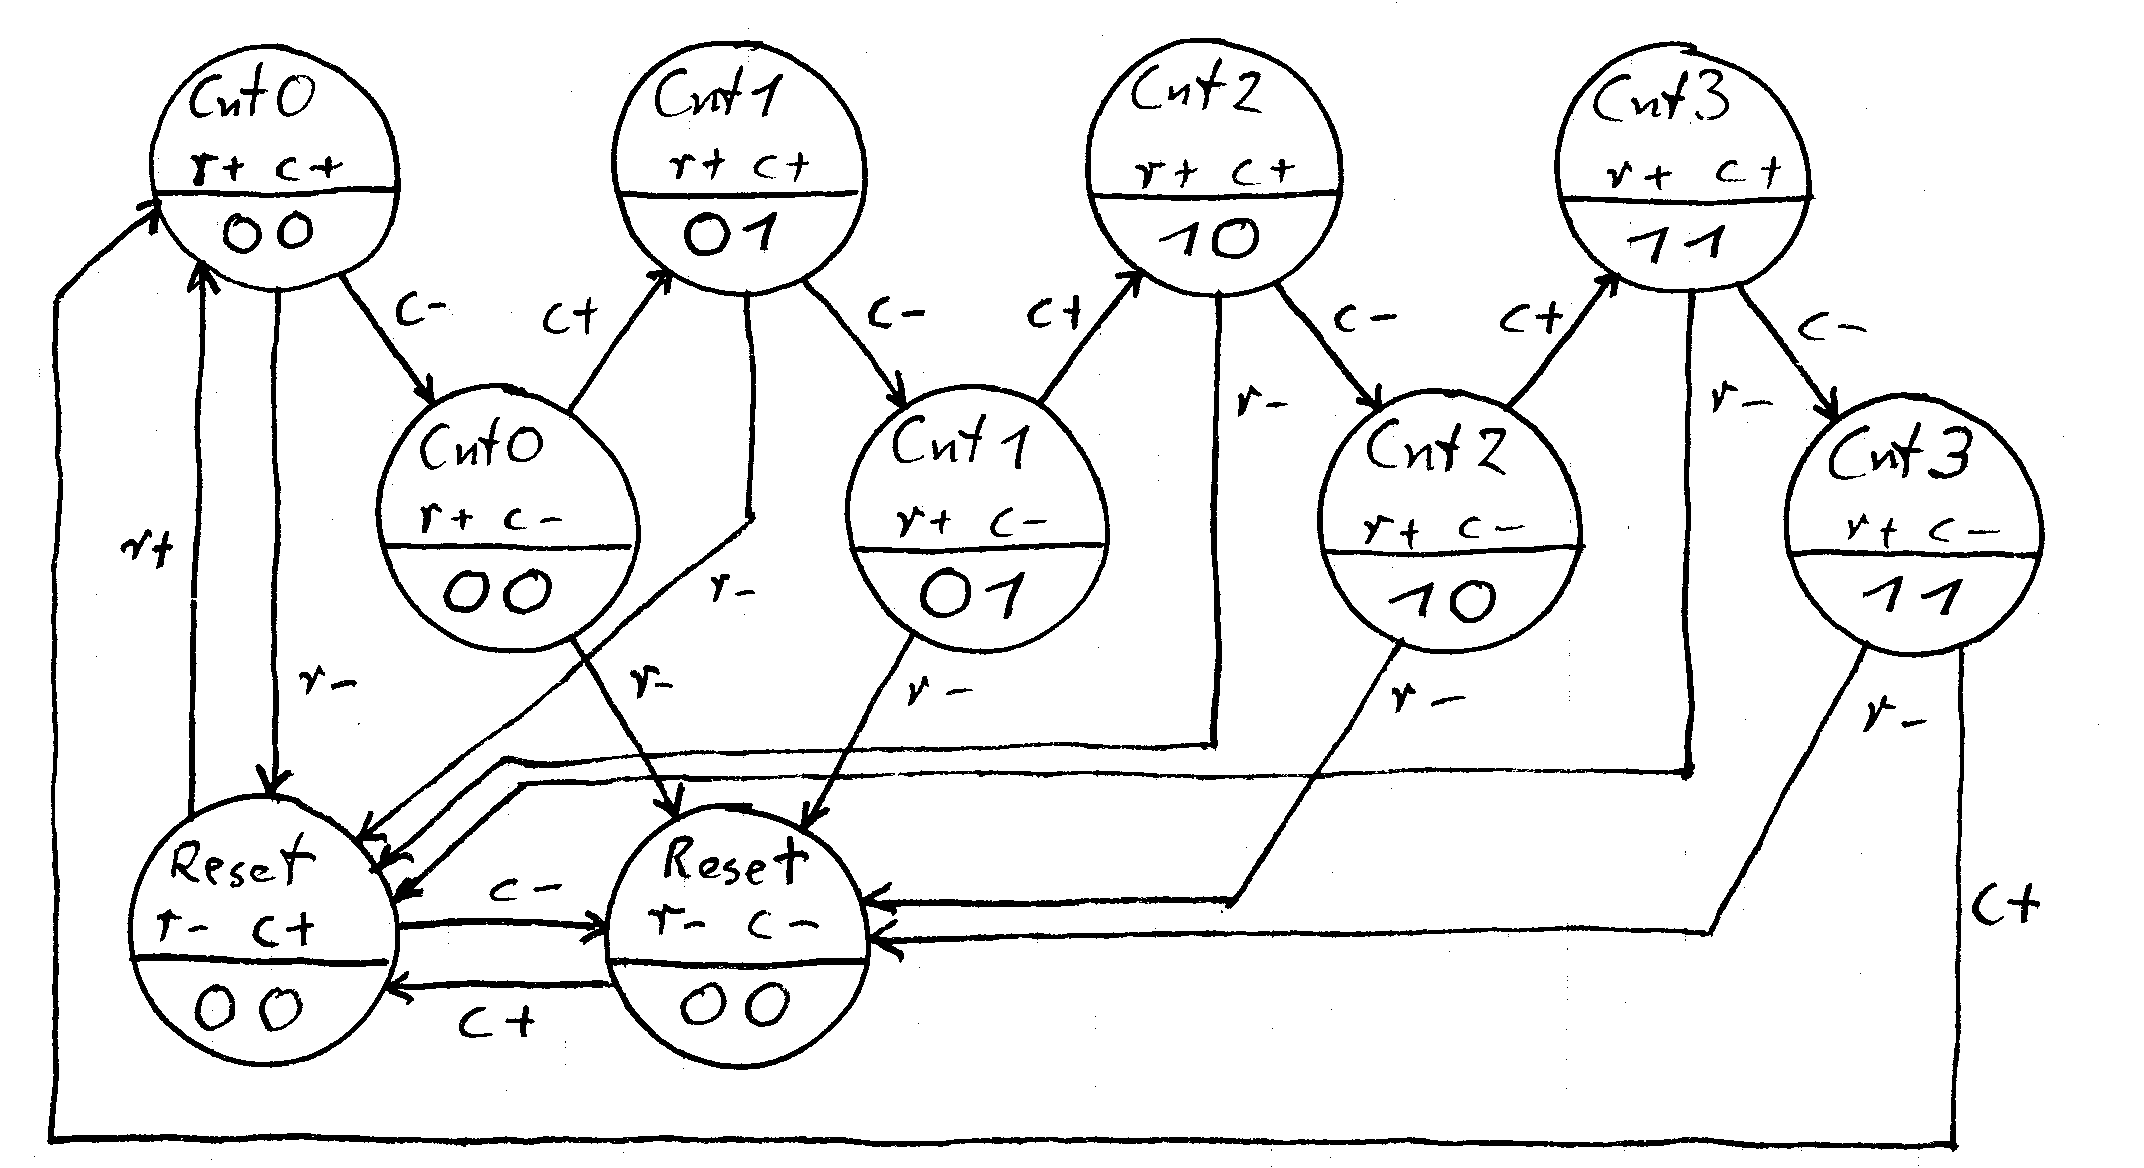 Cnt0
r+ c+
00
Cnt1
r+ c+
01
Cnt2
r+ c+
10
Cnt3
r+ c+
11
c-
c+
c-
c+
c-
c+
c-
r-
r-
Cnt0
r+ c-
00
Cnt1
r+ c-
01
Cnt2
r+ c-
10
Cnt3
r+ c-
11
r+
r-
r-
r-
r-
r-
r-
Reset
r- c+
00
c-
c+
Reset
r- c-
00
c+